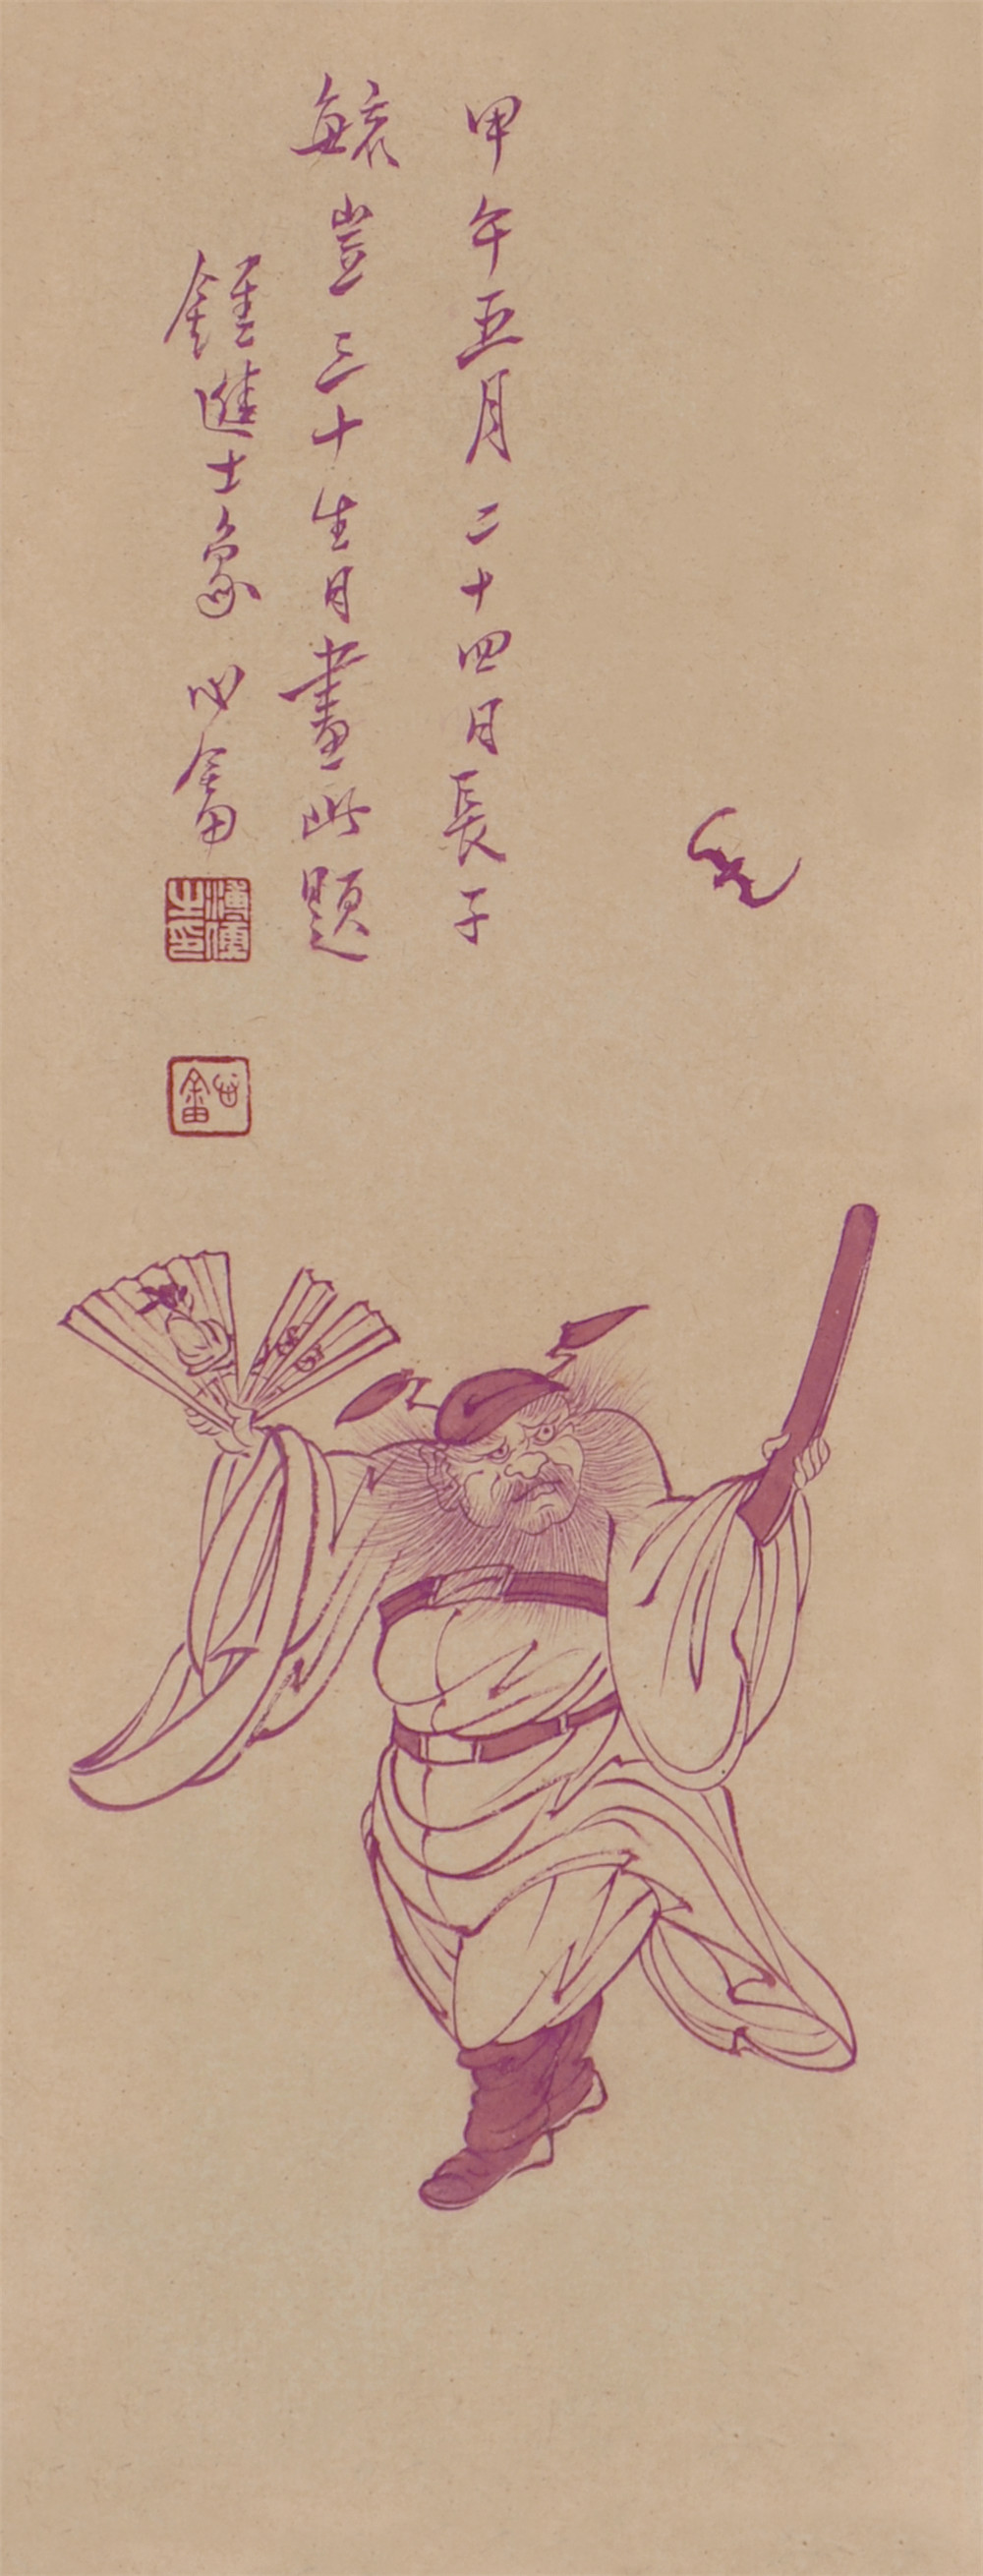 甲午五月二十四日長子
毓岦三十生日畫此題
鍾進士象 心畬
溥儒之印
心畬